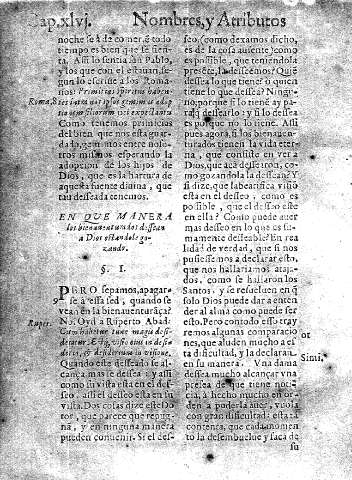 Cap.xlvj. Nombres, y Atributos
noche se à de comer, è todo
tiempo es bien que se sien-
ta. Assi lo sentia san Pablo,
y los que con el estauan, se-
gun lo escriue a los Roma-
nos: Primitias spiritus haben-
Roma.8 tes intra nos ipsos gemimus adop
tionem filiorum Dei expectantes
Como tenemos primicias
del bien que nos està guar-
dado, gemimos entre noso-
tros mismos esperando la
adopcion de los hijos de
Dios, que es la hartura de
aquesta fuente diuina, que
tan desseada tenemos.
EN QUE MANERA
los bienauenturados dessean
a Dios estandole go-
zando.
§. I.
PERO sepamos, apagar-
se a essa sed, quando se
vean en la bienauenturāça?
No. Oyd a Ruperto Abad:
Ruper.
desiderium in visione.
Quando este desseado se al-
cança mas se dessea: y assi
como su vista esta en el des-
seo, assi el desseo esta en su
vista. Dos cosas dize este Do
tor, que parece que repug-
nan, y en ninguna manera
pueden conuenir. Si el des-
seo, como dexamos dicho,
es de la cosa ausente, como
es possible, que teniendola
presēte, la desseemos? Quiē
dessea lo que tiene? ò quien
tiene lo que dessea? Ningu-
no, porque si lo tiene ay pa-
ra q dessearlo? y si lo dessea
es porque no lo tiene. Assi
pues agora, si los bienauen-
turados tienen la vida eter-
na, que consiste en ver a
Dios, que acà desseamos, co-
mo gozandola la dessean? Y
si dize, que la beatifica visiō
està en el desseo, como es
possible, que el desseo este
en ella? Como puede auer
mas desseo en lo que es su-
mamente desseable? En rea
lidad de verdad, que si nos
pusiessemos a declarar esto,
que nos hallariamos ataja-
dos, como se hallaron los
Santos, y se resuelven en q
solo Dios puede dar a enten
der al alma como puede ser
esto. Pero contodo esso tray
remos algunas comparacio
nes, que aluden mucho a es
ta dificultad, y la declaran
en su manera. Vna dama
Simi.
dessea mucho alcançar vna
presea de que tiene noti-
cia, à hecho mucho en or-
den a poderla auer, vuola
con gran dificultad: esta tā
contenta, que cada momen
to la desembuelue y saca de
su